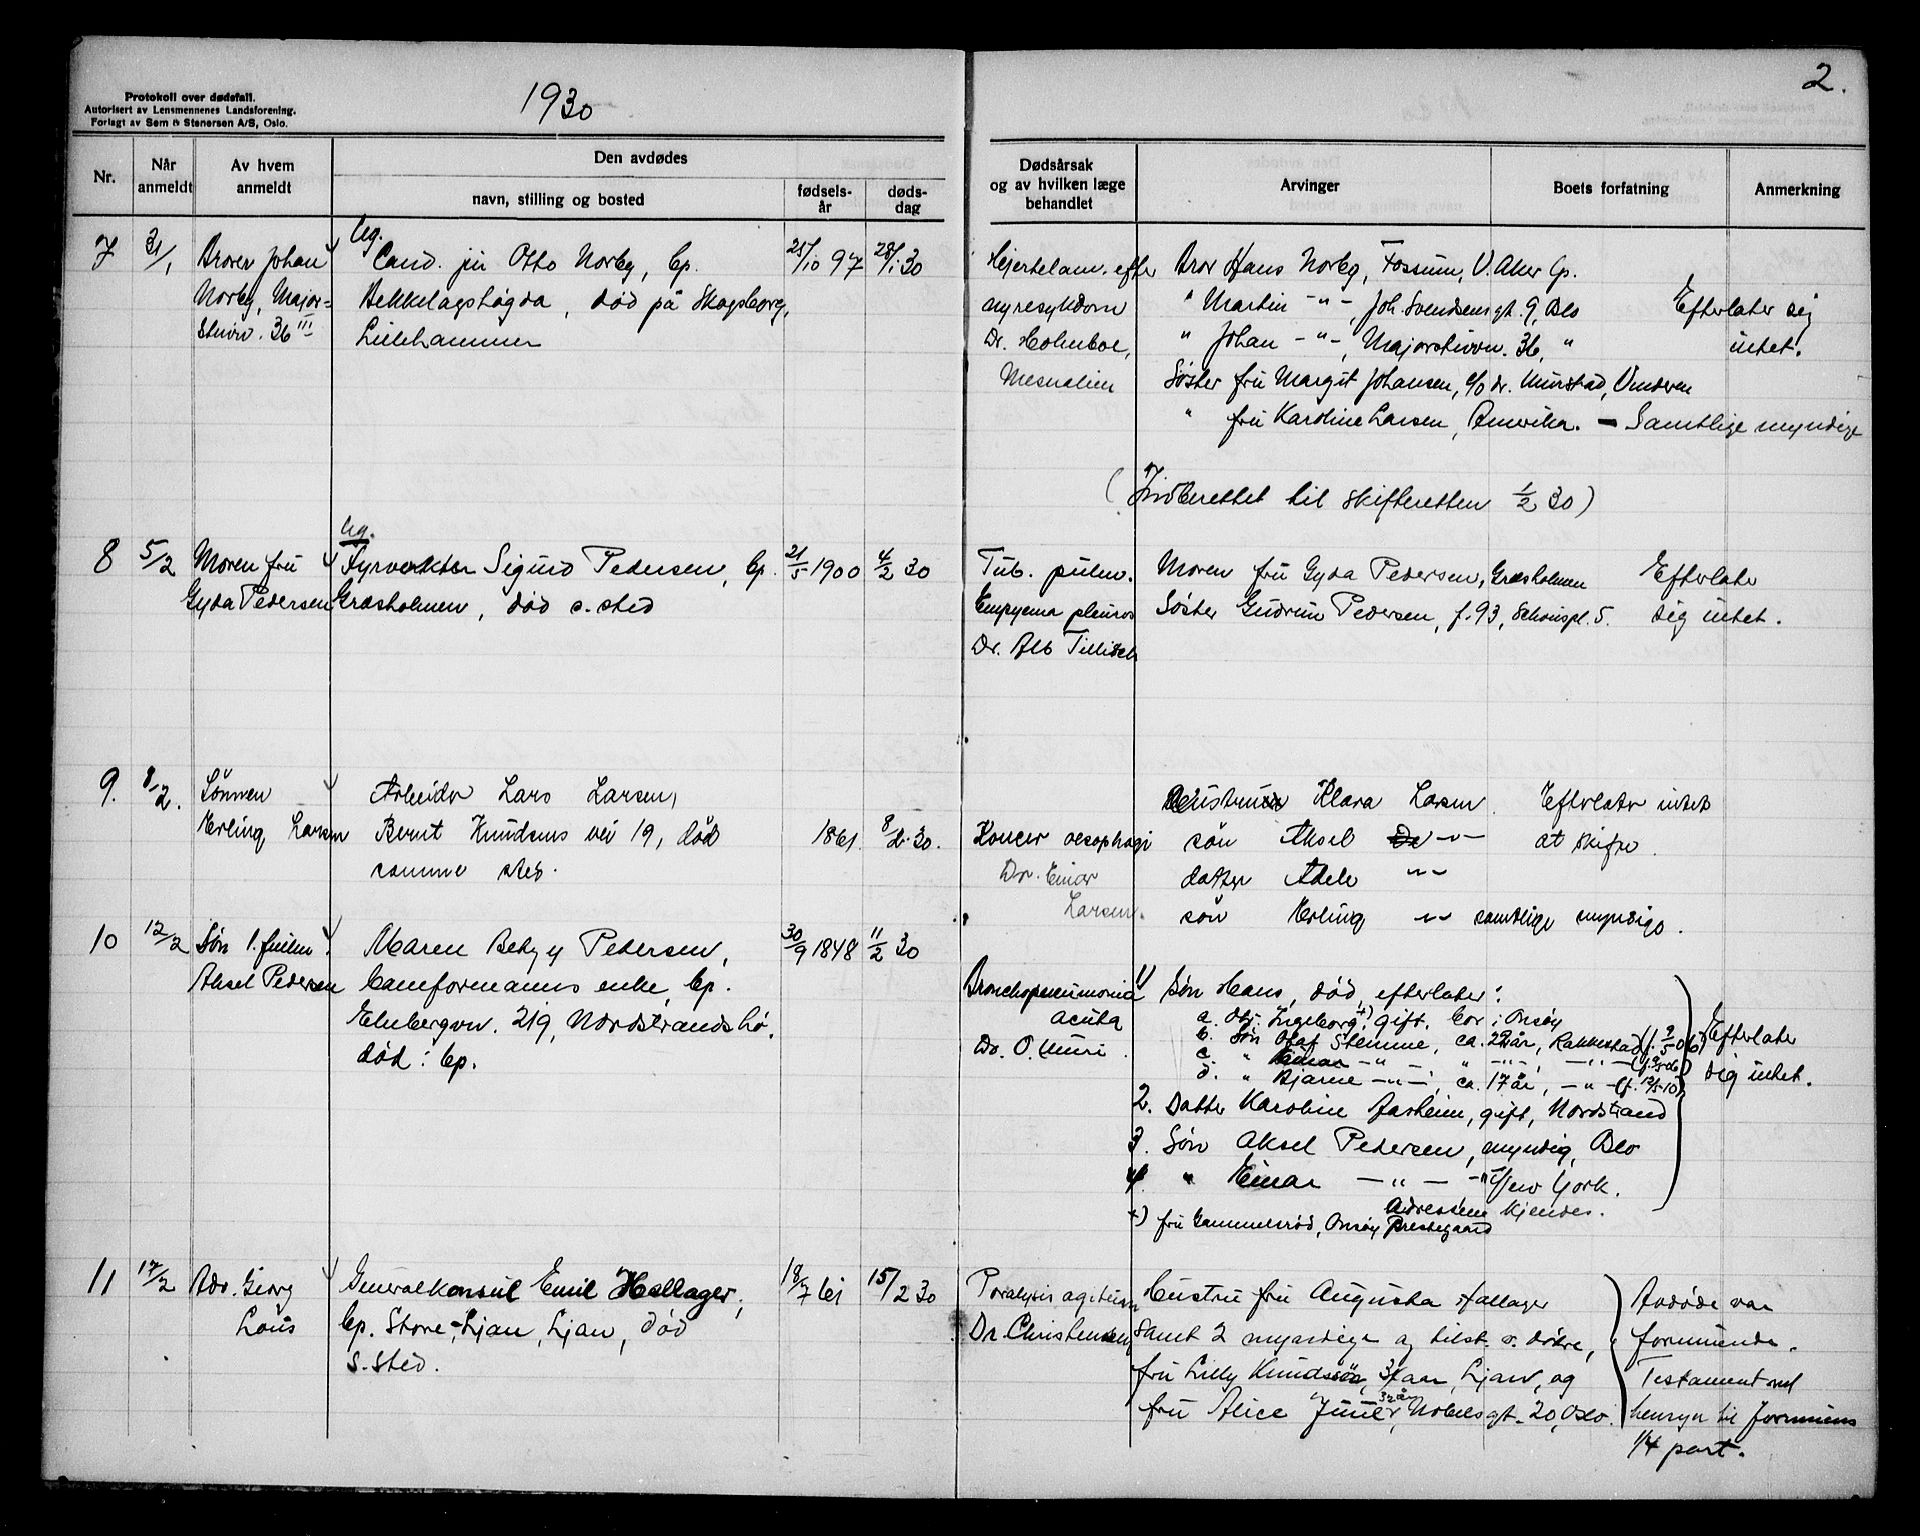 Protokoll over dødsfall.
Autorisert av Lensmennenes Landsforening.
Forlagt av Sem & Stenersen A/S, Oslo.
1930
2.
Nr.
Når anmeldt
Av hvem anmeldt
Den avdødes
navn, stilling og bosted
fødsels-år
døds-dag
Dødsårsak og av hvilken læge behandlet
Arvinger
Boets forfatning
Anmerkning
7
31/1
Broren Johan
Norby, Major-
stuvn. 36 III
Ug.
Cand. jur Otto Norby, Cp.
Bekkelagshøgda, død på Skogsborg,
Lillehammer
25/10 97
28/1 30
Hjertelam. efter
nyresykdom
Dr. Holmboe,
Mesnalien
Bror Hans Norby, Fossum, V. Aker Cp.
" Martin -"-, Joh. Svendsens gt. 9, Oslo
" Johan -"-, Majorstuvn. 36, "
Søster fru Margit Johansen, c/o dr. Munstad, Vinderen
" fru Karoline Larsen, Amerika. — Samtlige myndige
Efterlater sig
intet.
(Indberettet til skifteretten 1/2 30)
8
5/2
Moren fru
Gyda Pedersen
Ug.
Fyrvokter Sigurd Pedersen, Cp.
Græsholmen, død s. sted
21/5 1900
4/2 30
Tub. pulm.
Empyema pleuros
Dr. Alb Tillisch
Moren fru Gyda Pedersen, Græsholmen
Søster Gudrun Pedersen, f. 93, Schouspl. 5.
Efterlater
sig intet.
9.
8/2.
Sønnen
Erling Larsen
Arbeider Lars Larsen,
Bernt Knudsens vei 19, død
samme sted.
1861.
8/2.30.
Kancer oesophagi
Dr. Einar
Larsen.
Hustru Klara Larsen.
søn Aksel -"-
datter Adele -"-
søn Erling -"- samtlige myndige.
Efterlater intet
at skifte.
10
12/2
Søn
Aksel Pedersen
Maren Betzy Pedersen,
banformanns enke, Cp.
Ekebergvn. 219, Nordstrandshø.
død: Cp.
30/9 1848
11/2 30
Bronchopneumonia
acuta
Dr. O.
1) Søn Hans, død, efterlater:
a. Dtr. Ingeborg, +) gift, bor i Onsøy
b. Søn Olaf Stemme, ca. 22 år, Rakkestad
c. " Einar -"-
d. " Bjarne -"-, ca. 17 år, -"- (f. 12/5-10)
2. Datter Karoline Aasheim, gift, Nordstrand
3. Søn Aksel Pedersen, myndig, Oslo
4. " Einar -"- -"- New York.
Adressene kjendes.
+) fru Gammelsrød, Onsøy Prestegaard
Efterlater
sig intet.
11
17/2
Adv. Georg
Lous
Generalkonsul Emil Hallager,
Cp. Store-Ljan, Ljan, død
s. sted.
18/7 61
15/2 30
Paralysis agitans
Dr. Christensen
Hustru fru Augusta Hallager
samt 2 myndige og tilst. v. døtre,
fru Lilly Knudsen, 31 aar, Ljan, og
fru Alice Juuer, 32 år Nobelsgt. 20, Oslo.
Avdøde var
formuende.
Testament med
hensyn til formuens
1/4 part.